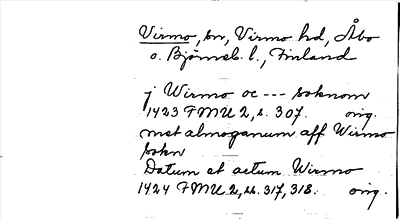 Virmo, sn, Virmo hd, Åbo
o. Björneb. l., Finland
j Wirmo oc --- soknom
1423 FMU 2, s. 307. orig.
met almoganum aff Wirmo
sokn
Datum et actum Wirmo
1424 FMU 2, ss. 317, 318. orig.